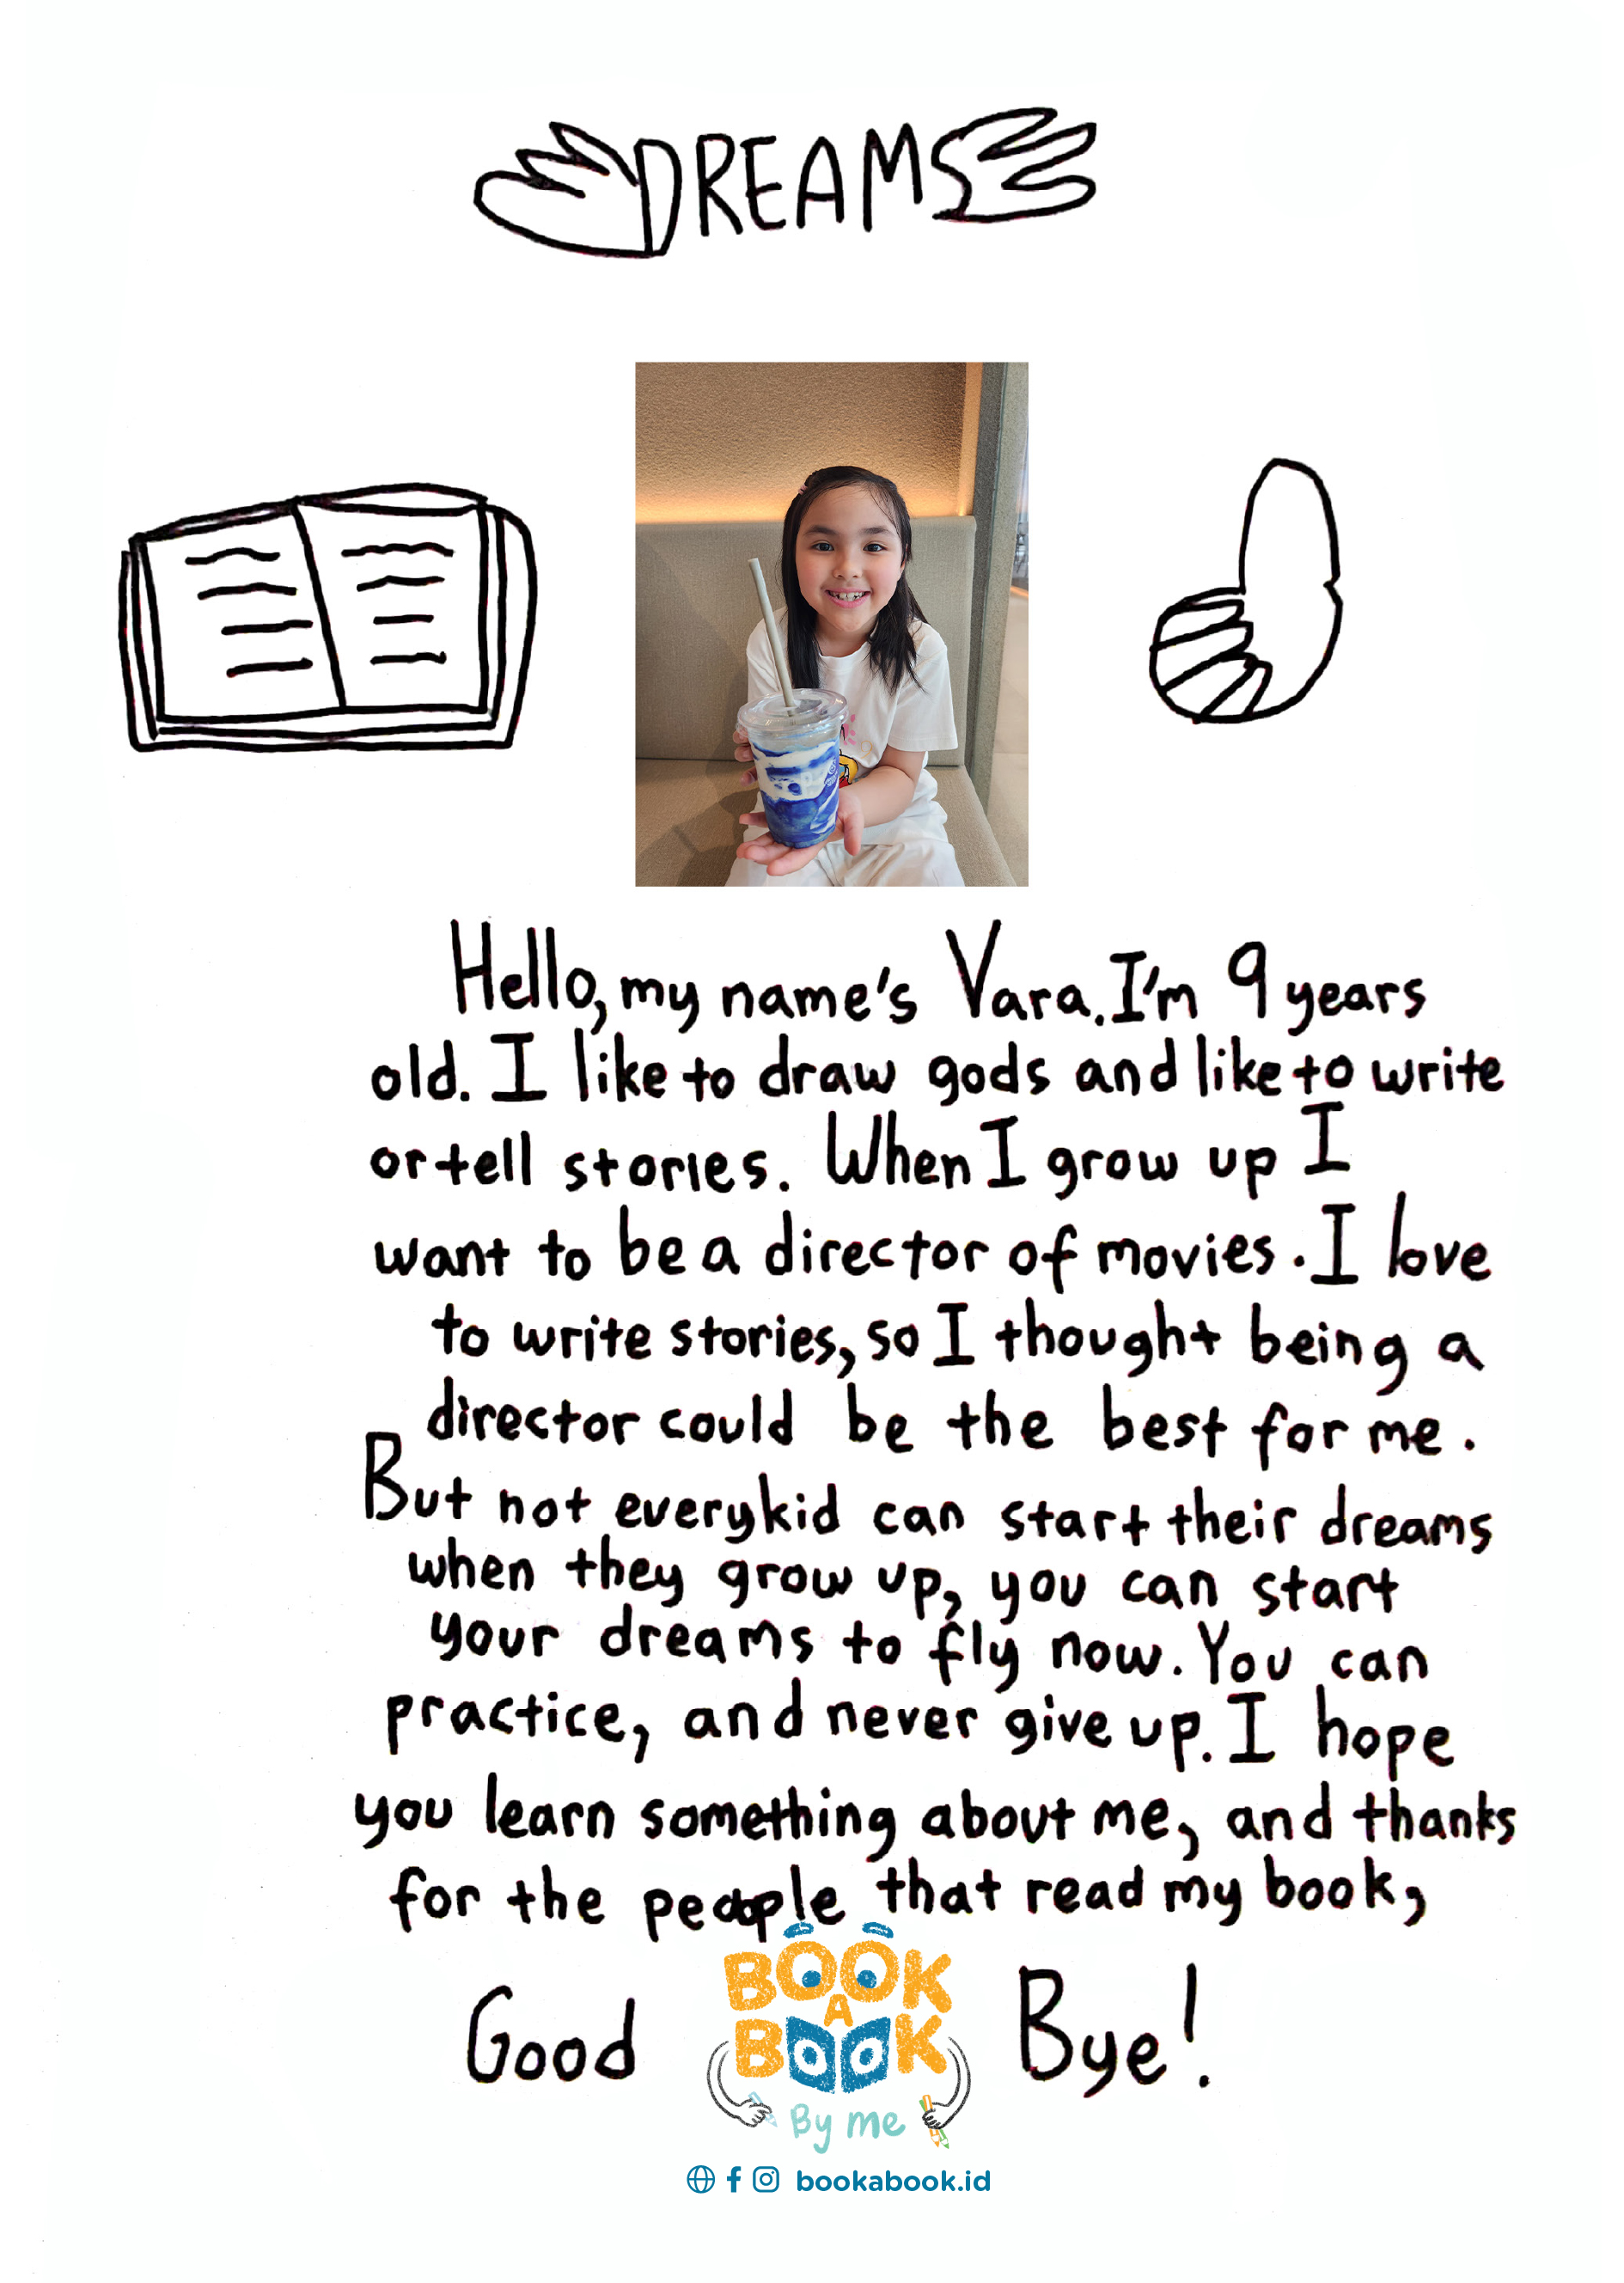 DREAMS
Hello, my name's Vara. I'm 9 years
old. I like to draw gods and like to write
or tell stories. When I grow up I
want to be a director of movies. I love
to write stories, so I thought being a
director could be the best for me.
But not everykid can start their dreams
when they grow up, you can start
your dreams to fly now. You can
practice, and never give up. I hope
you learn something about me, and thanks
for the people that read my book,
Good Bye!
BOOK
A
BOOK
By me
bookabook.id